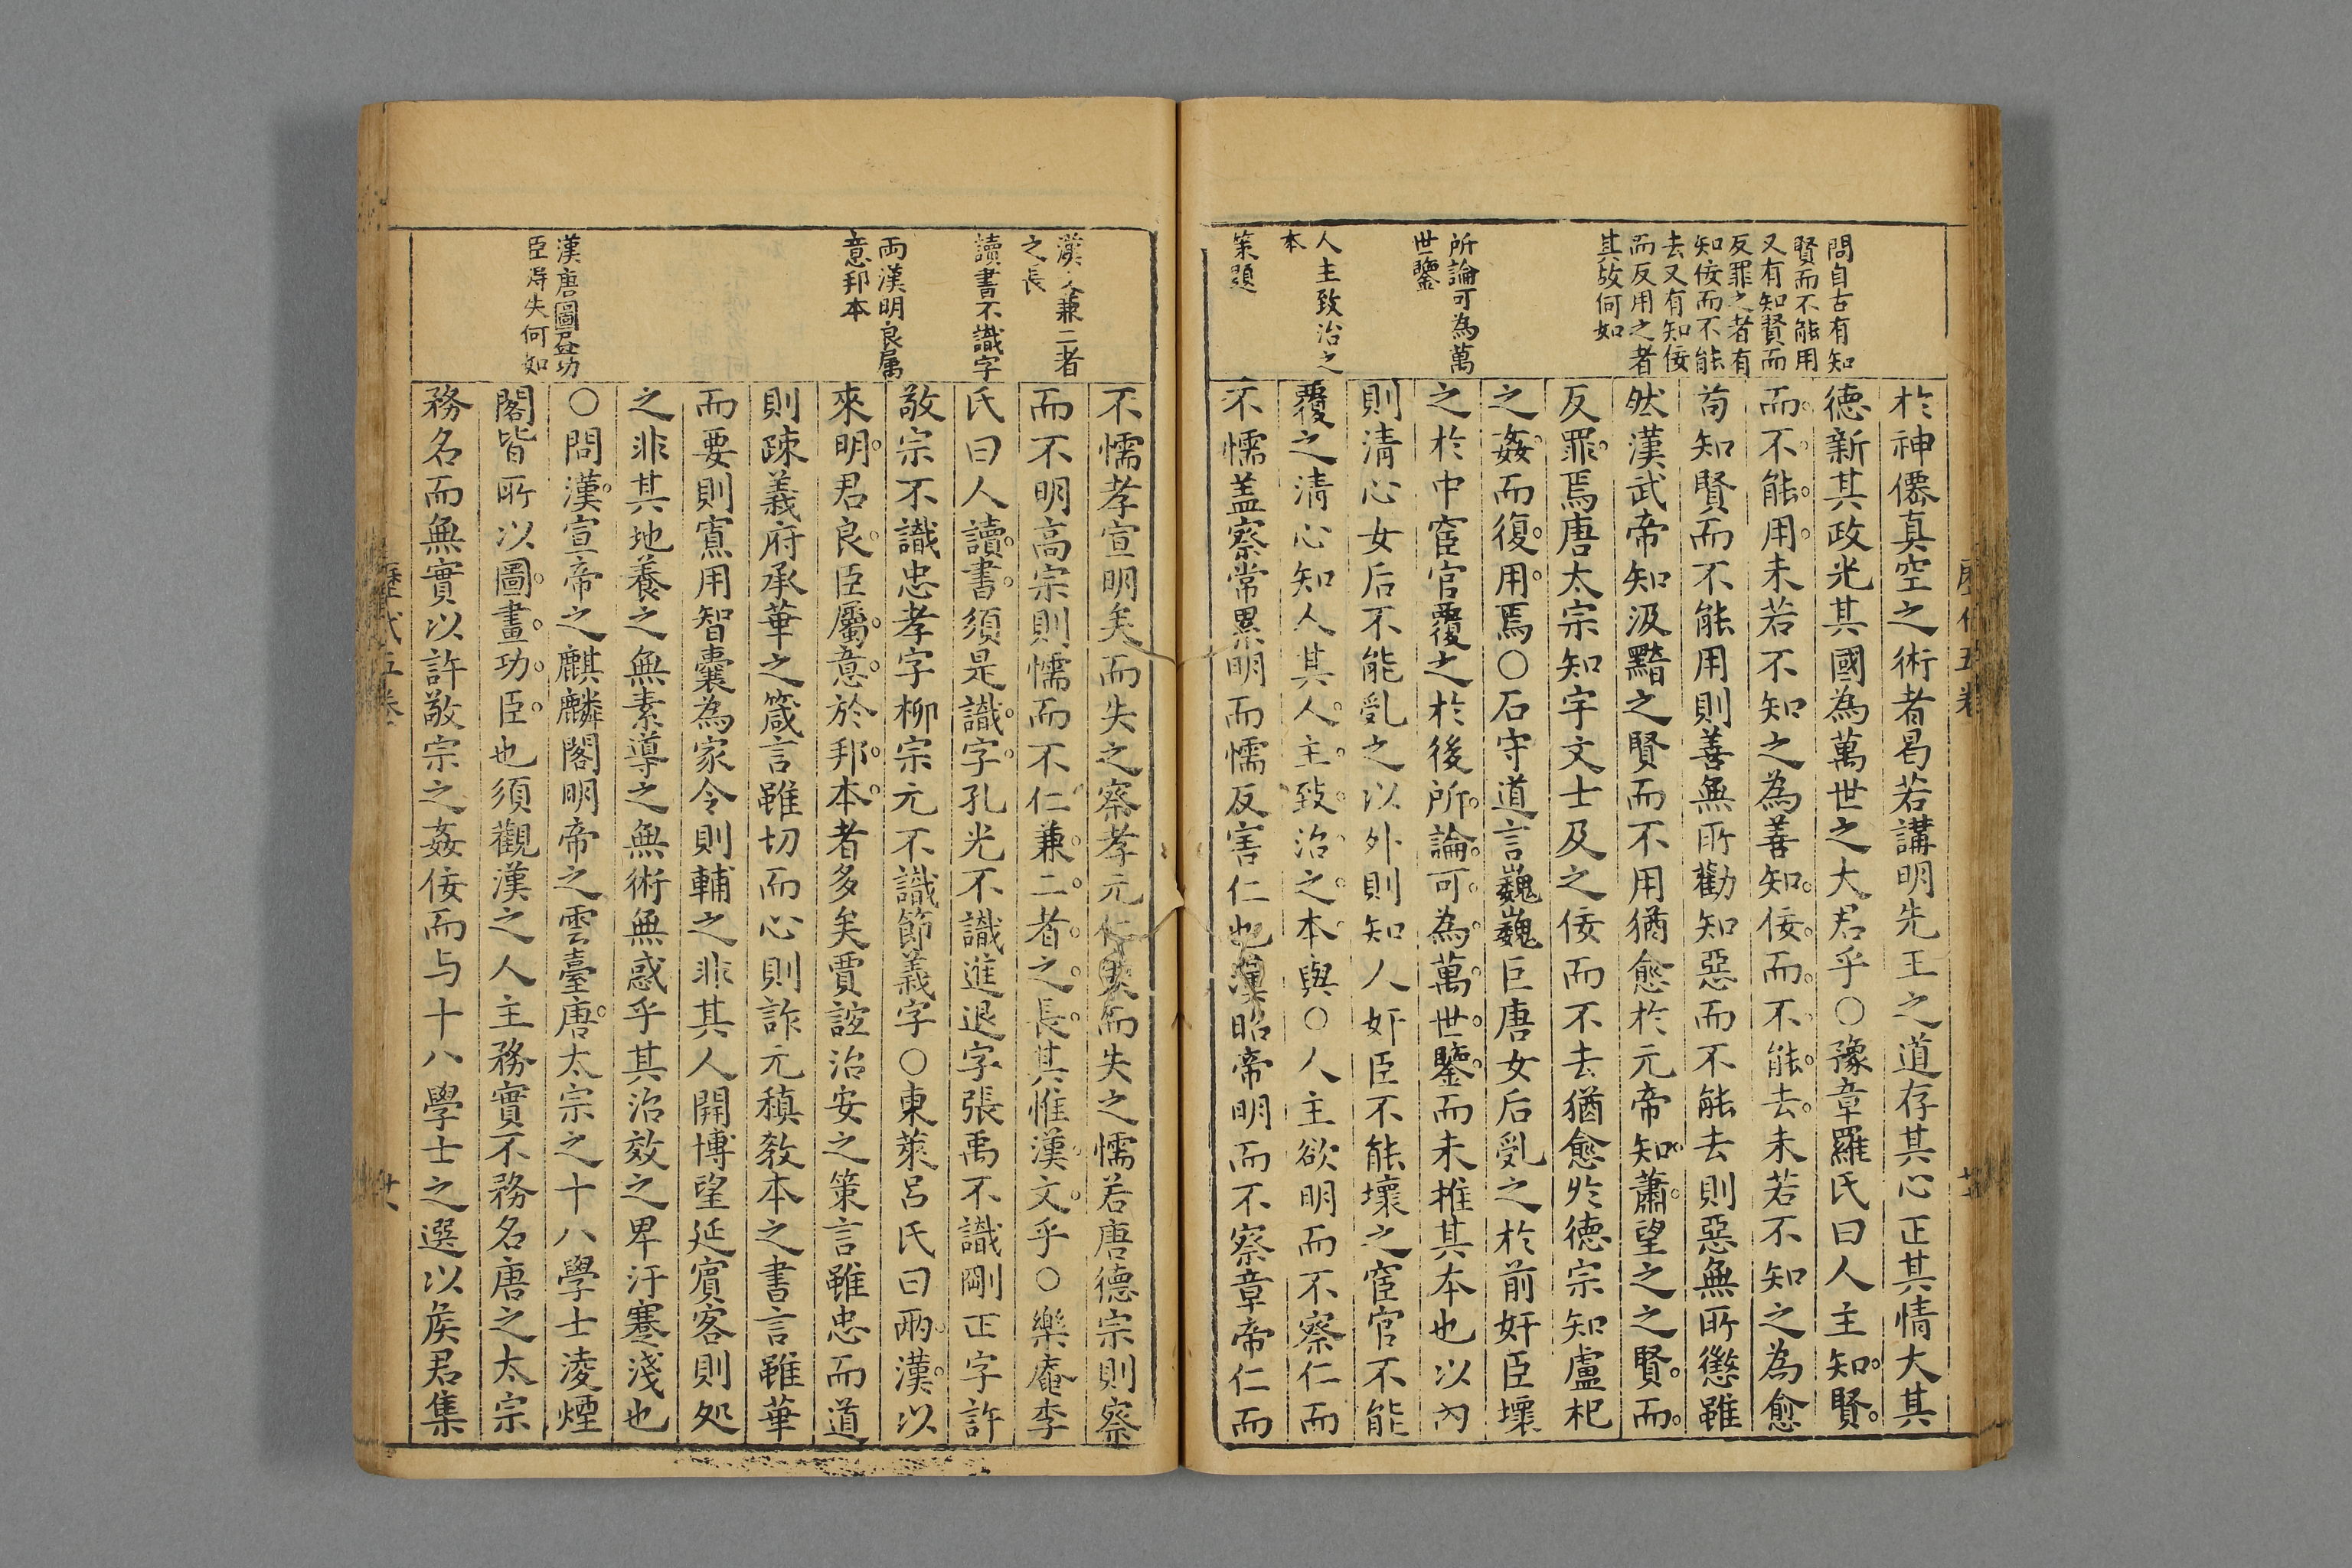 問自古有知
賢而不能用
又有知賢而
反罪之者有
知佞而不能
去又有知佞
而反用之者
其故何如
所論可為萬
世鑒
人主致治之
本
策題
於神僊真空之術者曷若講明先王之道存其心正其情大其
德新其政光其國為萬世之大君乎○豫章羅氏曰人主知賢
而不能用未若不知之為善知佞而不能去未若不知之為愈
苟知賢而不能用則善無所勸知惡而不能去則惡無所懲雖
然漢武帝知汲黯之賢而不用猶愈於元帝知蕭望之之賢而
反罪焉唐太宗知宇文士及之佞而不去猶愈於德宗知盧杞
之姦而復用焉○石守道言巍巍巨唐女后乱之於前奸臣壞
之於中宦官覆之於後所論可為萬世鑒而未推其本也以内
則清心女后不能乱之以外則知人奸臣不能壞之宦官不能
覆之清心知人其人主致治之本與○人主欲明而不察仁而
不懦盖察常累明而懦反害仁也漢昭帝明而不察章帝仁而
漢文兼二者
之長
讀書不識字
両漢明良属
意邦本
漢唐圖畫功
臣得失何如
不懦孝宣明矣而失之察孝元仁矣而失之懦若唐德宗則察
而不明高宗則懦而不仁兼二者之長其惟漢文乎○樂庵李
氏曰人讀書須是識字孔光不識進退字張禹不識剛正字許
敬宗不識忠孝字柳宗元不識節義字○東萊呂氏曰兩漢以
來明君良臣屬意於邦本者多矣賈誼治安之策言雖忠而道
則疎義府承華之箴言雖切而心則詐元稹教本之書言雖華
而要則寡用智囊為家令則輔之非其人開博望延賓客則処
之非其地養之無素導之無術無惑乎其治效之卑汙蹇淺也
○問漢宣帝之麒麟閣明帝之雲臺唐太宗之十八學士淩煙
閣皆所以圖畫功臣也須觀漢之人主務實不務名唐之太宗
務名而無實以許敬宗之姦佞而与十八學士之選以矦君集
歷代五卷
廿六